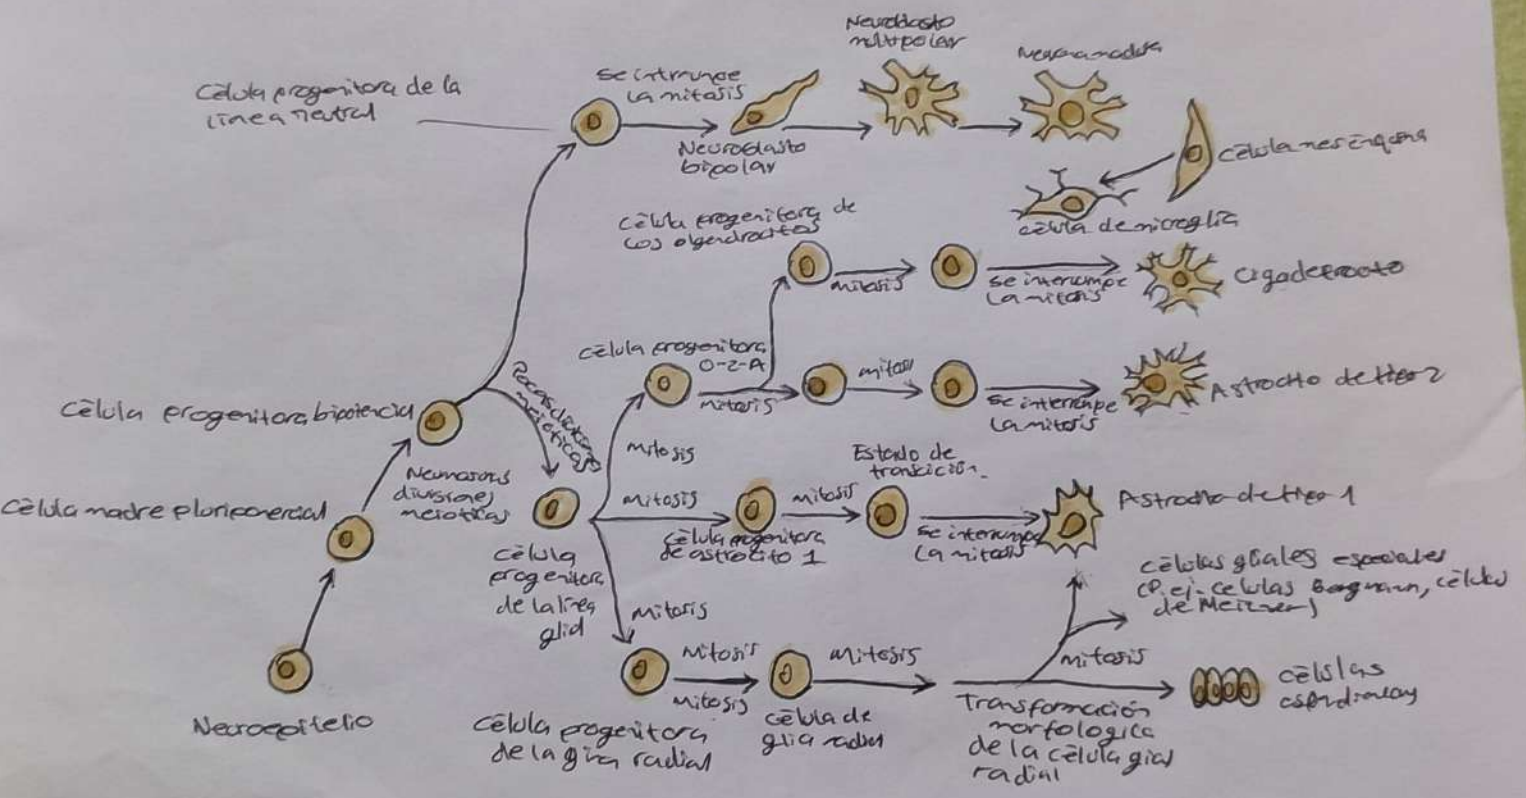 Neuroblasto
multipolar
Neurona madura
Célula progenitora de la
línea neural
se intrrumpe
la mitosis
Neuroblasto
bipolar
célula mesénquima
célula de microglía
célula progenitora de
los olgendrocitos
mitosis
se interrumpe
la mitosis
célula progenitora
O-2-A
mitosis
mitosi
se interrumpe
la mitosis
Astrocito de tipo 2
Célula progenitora bipotencial
Pocas divisiones
meioticas
mitosis
Numerosas
divisiones
meioticas
Célula madre pluripotencial
mitosis
célula progenitora
de astrocito 1
mitosis
Estado de
transición.
se interrumpe
la mitosis
Astrocito de tipo 1
célula
progenitora
de la línea
glial
mitosis
células gliales especiales
(P. ej. celulas Bergmann, células
de
Neuroepitelio
célula progenitora
de la glia radial
mitosis
mitosis
célula de
glia radial
mitosis
mitosis
Transformación
morfologica
de la célula glial
radial
células